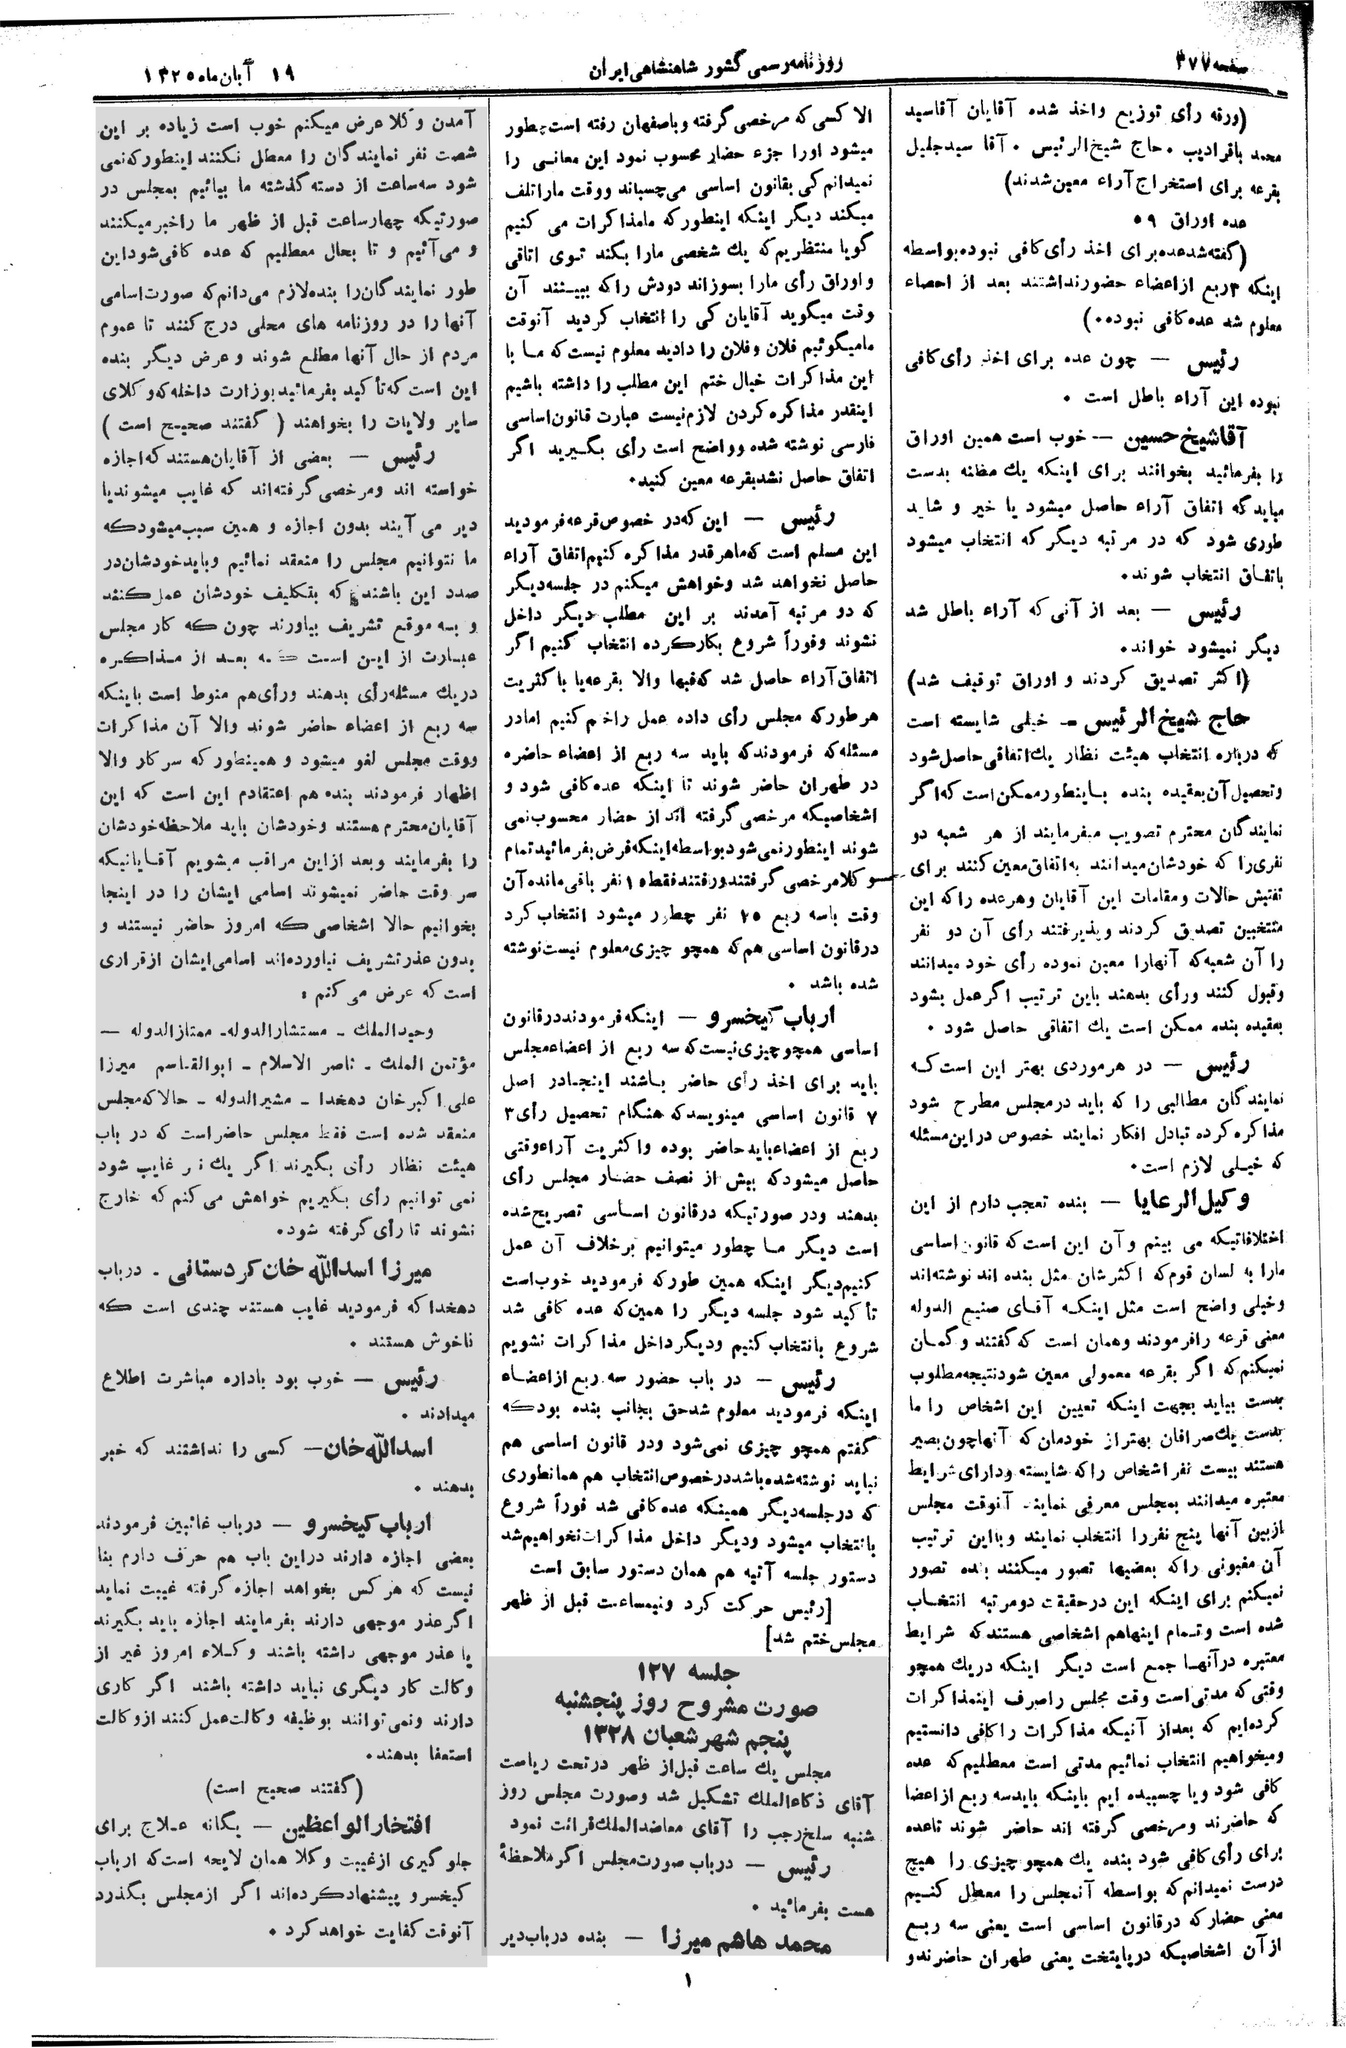 صفحه ۳۷۷
روزنامه رسمی کشور شاهنشاهی ایران
۱۹ آبان ماه ۱۳۲۵
(ورقه رأی توزیع واخذ شده آقایان آقاسید
محمد باقرادیب ۰ حاج شیخ‌الرئیس ۰ آقا سید جلیل
بقرعه برای استخراج آراء معین شدند)
عده اوراق ۵۹
(گفته شد عده برای اخذ رأی کافی نبوده بواسطه
اینکه ۳ ربع از اعضاء حضور نداشتند بعد از احصاء
معلوم شد عده کافی نبوده۰)
رئیس — چون عده برای اخذ رأی کافی
نبوده این آراء باطل است ۰
آقاشیخ حسین — خوب است همین اوراق
را بفرمائید بخوانند برای اینکه یك مظنه بدست
میاید که اتفاق آراء حاصل میشود یا خیر و شاید
طوری شود که در مرتبه دیگر که انتخاب میشود
باتفاق انتخاب شوند۰
رئیس — بعد از آنی که آراء باطل شد
دیگر نمیشود خواند۰
(اکثر تصدیق کردند و اوراق توقیف شد)
حاج شیخ الرئیس — خیلی شایسته است
که درباره انتخاب هیئت نظار یك اتفاقی حاصل شود
وتحصیل آن بعقیده بنده باینطور ممکن است که اگر
نمایندگان محترم تصویب میفرمایند از هر شعبه دو
نفری را که خودشان میدانند به اتفاق معین کنند برای
تفتیش حالات ومقامات این آقایان وهر عده را که این
منتخبین تصدیق کردند وپذیرفتند رأی آن دو نفر
را آن شعبه که آنهارا معین نموده رأی خود میدانند
وقبول کنند ورأی بدهند باین ترتیب اگر عمل بشود
بعقیده بنده ممکن است یك اتفاقی حاصل شود ۰
رئیس — در هر موردی بهتر این است که
نمایندگان مطالبی را که باید در مجلس مطرح شود
مذاکره کرده تبادل افکار نمایند خصوص در این مسئله
که خیلی لازم است۰
وکیل الرعایا — بنده تعجب دارم از این
اختلافاتیکه می بینم وآن این است که قانون اساسی
مارا به لسان قوم که اکثرشان مثل بنده اند نوشته‌اند
وخیلی واضح است مثل اینکه آقای صنیع الدوله
معنی قرعه رافرمودند وهمان است که گفتند وگمان
نمیکنم که اگر بقرعه معمولی معین شود نتیجه مطلوب
بدست بیاید بجهت اینکه تعیین این اشخاص را ما
بدست یك صرافان بهتر از خودمان که آنها چون بصیر
هستند بیست نفر اشخاص را که شایسته و دارای شرایط
معتبره میدانند بمجلس معرفی نمایند آنوقت مجلس
از بین آنها پنج نفر را انتخاب نمایند وبااین ترتیب
آن مغبونی را که بعضیها تصور میکنند بنده تصور
نمیکنم برای اینکه این در حقیقت دو مرتبه انتخاب
شده است وتمام اینهاهم اشخاصی هستند که شرایط
معتبره در آنها جمع است دیگر اینکه در یك همچو
وقتی که مدتی است وقت مجلس را صرف این مذاکرات
کرده‌ایم که بعد از آنیکه مذاکرات را کافی دانستیم
ومیخواهیم انتخاب نمائیم مدتی است معطلیم که عده
کافی شود وبا چسبیده ایم باینکه باید سه ربع از اعضا
که حاضرند ومرخصی گرفته اند حاضر شوند تاعده
برای رأی کافی شود بنده یك همچو چیزی را هیچ
درست نمیدانم که بواسطه آن مجلس را معطل کنیم
معنی حضار که در قانون اساسی است یعنی سه ربع
از آن اشخاصیکه در پایتخت یعنی طهران حاضرند و
الا کسی که مرخصی گرفته وباصفهان رفته است چطور
میشود اورا جزء حضار محسوب نمود این معانی را
نمیدانم کی بقانون اساسی می‌چسباند ووقت مارا تلف
میکند دیگر اینکه اینطور که ما مذاکرات می کنیم
گویا منتظریم که یك شخصی مارا بکند توی اتاقی
و اوراق رأی مارا بسوزاند دودش را که ببینند آن
وقت میگوید آقایان کی را انتخاب کردید آنوقت
مامیگوئیم فلان وفلان را دادید معلوم نیست که ما با
این مذاکرات خیال ختم این مطلب را داشته باشیم
اینقدر مذاکره کردن لازم نیست عبارت قانون اساسی
فارسی نوشته شده وواضح است رأی بگیرید اگر
اتفاق حاصل نشد بقرعه معین کنید۰
رئیس — این که در خصوص قرعه فرمودید
این مسلم است که ماهر قدر مذاکره کنیم اتفاق آراء
حاصل نخواهد شد وخواهش میکنم در جلسه دیگر
که دو مرتبه آمدند بر این مطلب دیگر داخل
نشوند وفوراً شروع بکار کرده انتخاب کنیم اگر
اتفاق آراء حاصل شد که فبها والا بقرعه یا باکثریت
هر طور که مجلس رأی داده عمل راختم کنیم اما در
مسئله که فرمودند که باید سه ربع از اعضاء حاضره
در طهران حاضر شوند تا اینکه عده کافی شود و
اشخاصیکه مرخصی گرفته اند از حضار محسوب نمی
شوند اینطور نمی شود بواسطه اینکه فرض بفرمائید تمام
وکلا مرخصی گرفتند ورفتند فقط ۱۵ نفر باقی مانده آن
وقت باسه ربع ۲۵ نفر چطور میشود انتخاب کرد
در قانون اساسی هم که همچو چیزی معلوم نیست نوشته
شده باشد ۰
ارباب کیخسرو — اینکه فرمودند در قانون
اساسی همچو چیزی نیست که سه ربع از اعضاء مجلس
باید برای اخذ رأی حاضر باشند اینجا در اصل
۷ قانون اساسی مینویسد که هنگام تحصیل رأی ۳
ربع از اعضاء باید حاضر بوده واکثریت آراء وقتی
حاصل میشود که بیش از نصف حضار مجلس رأی
بدهند ودر صورتیکه در قانون اساسی تصریح شده
است دیگر ما چطور میتوانیم برخلاف آن عمل
کنیم دیگر اینکه همین طور که فرمودید خوب است
تأکید شود جلسه دیگر را همین که عده کافی شد
شروع بانتخاب کنیم ودیگر داخل مذاکرات نشویم
رئیس — در باب حضور سه ربع از اعضاء
اینکه فرمودید معلوم شد حق بجانب بنده بود که
گفتم همچو چیزی نمی‌شود ودر قانون اساسی هم
نباید نوشته شده باشد در خصوص انتخاب هم همانطوری
که در جلسه دیگر همینکه عده کافی شد فوراً شروع
بانتخاب میشود ودیگر داخل مذاکرات نخواهیم شد
دستور جلسه آتیه هم همان دستور سابق است
[رئیس حرکت کرد ونیمساعت قبل از ظهر
مجلس ختم شد]
جلسه ۱۲۷
صورت مشروح روز پنجشنبه
پنجم شهر شعبان ۱۳۲۸
مجلس یك ساعت قبل از ظهر در تحت ریاست
آقای ذکاءالملك تشکیل شد وصورت مجلس روز
شنبه سلخ رجب را آقای معاضدالملك قرائت نمود
رئیس — در باب صورت مجلس اگر ملاحظهٔ
هست بفرمائید ۰
محمد هاشم میرزا — بنده در باب دیر
آمدن وکلا عرض میکنم خوب است زیاده بر این
شصت نفر نمایندگان را معطل نکنند اینطور که نمی
شود سه ساعت از دسته گذشته ما بیائیم بمجلس در
صورتیکه چهار ساعت قبل از ظهر ما را خبر میکنند
و می آئیم و تا بحال معطلیم که عده کافی شود این
طور نمایندگان را بنده لازم می‌دانم که صورت اسامی
آنها را در روزنامه های محلی درج کنند تا عموم
مردم از حال آنها مطلع شوند و عرض دیگر بنده
این است که تأکید بفرمائید بوزارت داخله که وکلای
سایر ولایات را بخواهند (گفتند صحیح است)
رئیس — بعضی از آقایان هستند که اجازه
خواسته اند ومرخصی گرفته‌اند که غایب میشوند یا
دیر می آیند بدون اجازه و همین سبب میشود که
ما نتوانیم مجلس را منعقد نمائیم وباید خودشان در
صدد این باشند که بتکلیف خودشان عمل کنند
و به موقع تشریف بیاورند چون که کار مجلس
عبارت از این است که بعد از مذاکره
در یك مسئله رأی بدهند ورأی هم منوط است باینکه
سه ربع از اعضاء حاضر شوند والا آن مذاکرات
ووقت مجلس لغو میشود و همینطور که سرکار والا
اظهار فرمودند بنده هم اعتقادم این است که این
آقایان محترم هستند وخودشان باید ملاحظه خودشان
را بفرمایند وبعد از این مراقب میشویم آقایانیکه
سر وقت حاضر نمیشوند اسامی ایشان را در اینجا
بخوانیم حالا اشخاصی که امروز حاضر نیستند و
بدون عذر تشریف نیاورده‌اند اسامی ایشان از قراری
است که عرض می کنم :
وحیدالملك - مستشارالدوله - ممتازالدوله —
مؤتمن الملك - ناصر الاسلام - ابوالقاسم میرزا
علی اکبر خان دهخدا - مشیرالدوله - حالا که مجلس
منعقد شده است فقط مجلس حاضر است که در باب
هیئت نظار رأی بگیرند اگر یك نفر غایب شود
نمی توانیم رأی بگیریم خواهش می کنم که خارج
نشوند تا رأی گرفته شود۰
میرزا اسدالله خان کردستانی - در باب
دهخدا که فرمودید غایب هستند چندی است که
ناخوش هستند ۰
رئیس — خوب بود باداره مباشرت اطلاع
میدادند ۰
اسدالله خان — کسی را نداشتند که خبر
بدهند ۰
ارباب کیخسرو — در باب غائبین فرمودند
بعضی اجازه دارند در این باب هم حرف دارم بنا
نیست که هر کس بخواهد اجازه گرفته غیبت نماید
اگر عذر موجهی دارند بفرمایند اجازه باید بگیرند
یا عذر موجهی داشته باشند وکلاء امروز غیر از
وکالت کار دیگری نباید داشته باشند اگر کاری
دارند ونمی توانند بوظیفه وکالت عمل کنند از وکالت
استعفا بدهند۰
(گفتند صحیح است)
افتخار الواعظین — یگانه علاج برای
جلوگیری از غیبت وکلا همان لایحه است که ارباب
کیخسرو پیشنهاد کرده‌اند اگر از مجلس بگذرد
آنوقت کفایت خواهد کرد ۰
۱